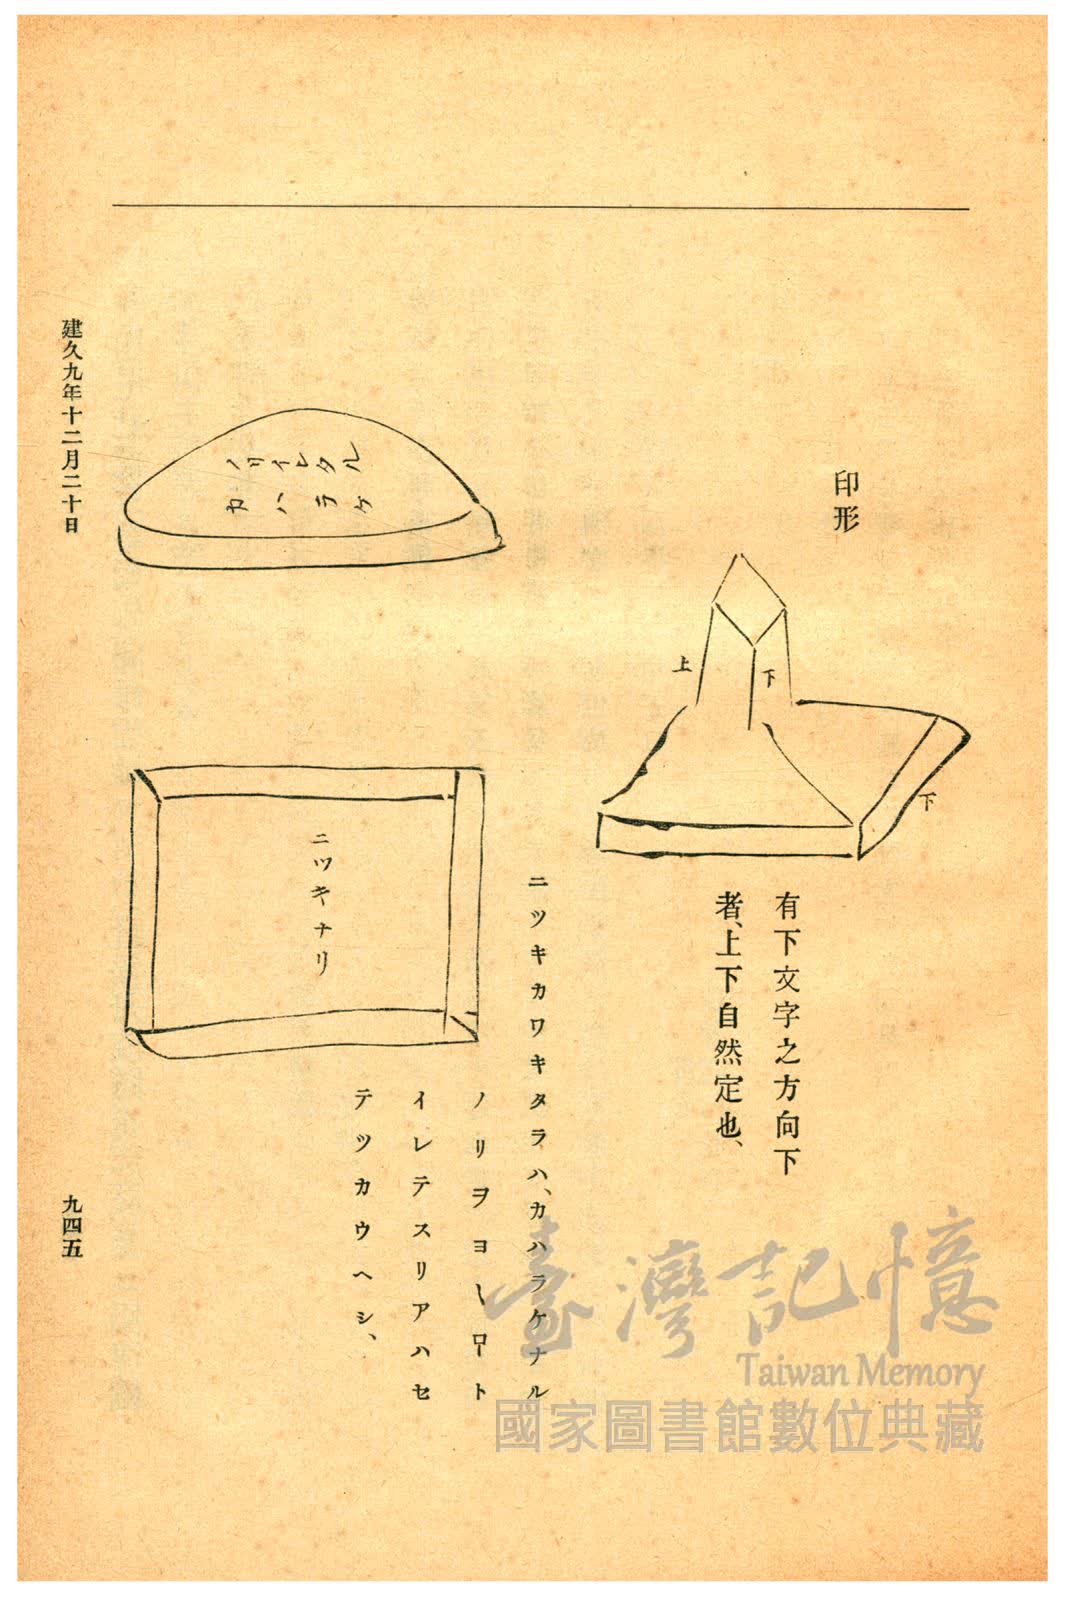 印形
上
下
下
有下文字之方向下
者、上下自然定也、
ニツキカワキタラハ、カハラケナル
ノリヲヨ
イレテスリアハセ
テツカウヘシ、
ノリイレタル
カハラケ
ニツキナリ
建久九年十二月二十日
九四五
臺灣記憶
Taiwan Memory
國家圖書館數位典藏